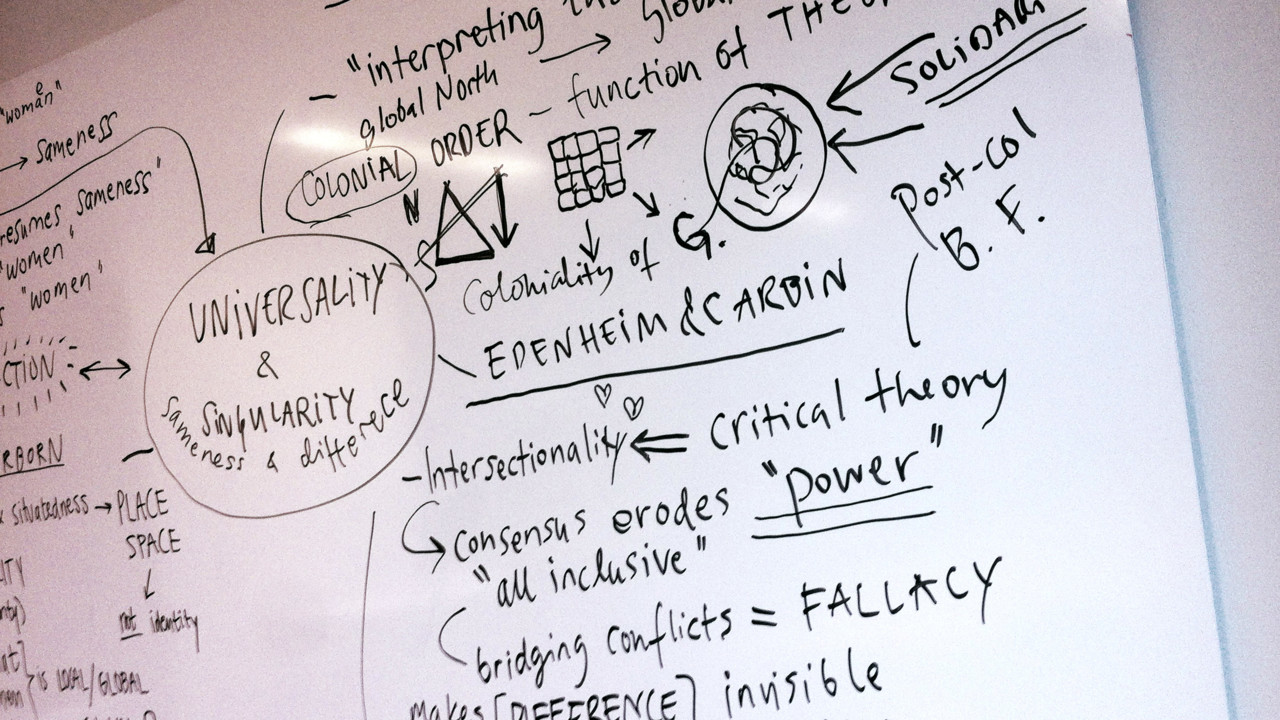 "woman"
→ sameness
sameness"
"women"
"women"
CTION
RBORN
situatedness → PLACE
SPACE
not identity
is LOCAL/GLOBAL
UNIVERSALITY
&
SINGULARITY
sameness & difference
- "interpreting
global North
COLONIAL ORDER - function of
N
S
Coloniality of G.
SOLIDARI
Post-col
B. F.
EDENHEIM & CARBIN
- Intersectionality ⇐ critical theory
consensus erodes "power"
"all inclusive"
bridging conflicts = FALLACY
makes [DIFFERENCE] invisible